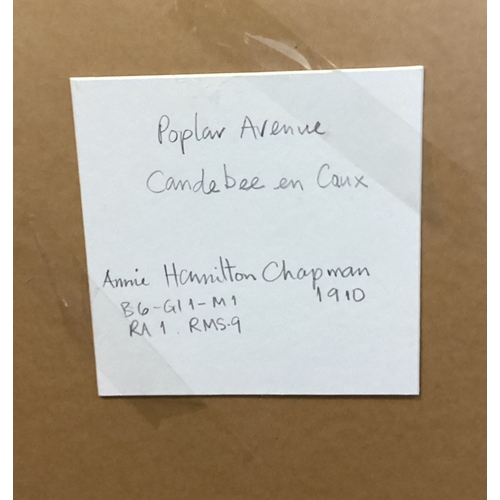 Poplar Avenue
Candebee en Caux
Annie Hamilton Chapman
B6-G11-M1 1910
RA1. RMS-9